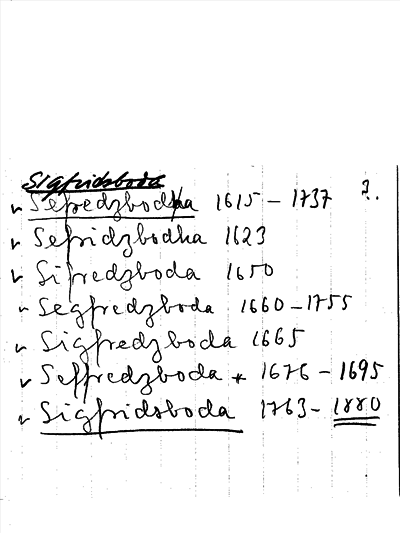 Sigfridsboda
Sefredzbodha 1615 – 1737 2.
Sefridzbodha 1623
Sifredzboda 1650
Segfredzboda 1660 – 1755
Sigfredzboda 1665
Seffredzboda * 1676 – 1695
Sigfridsboda 1763 – 1880